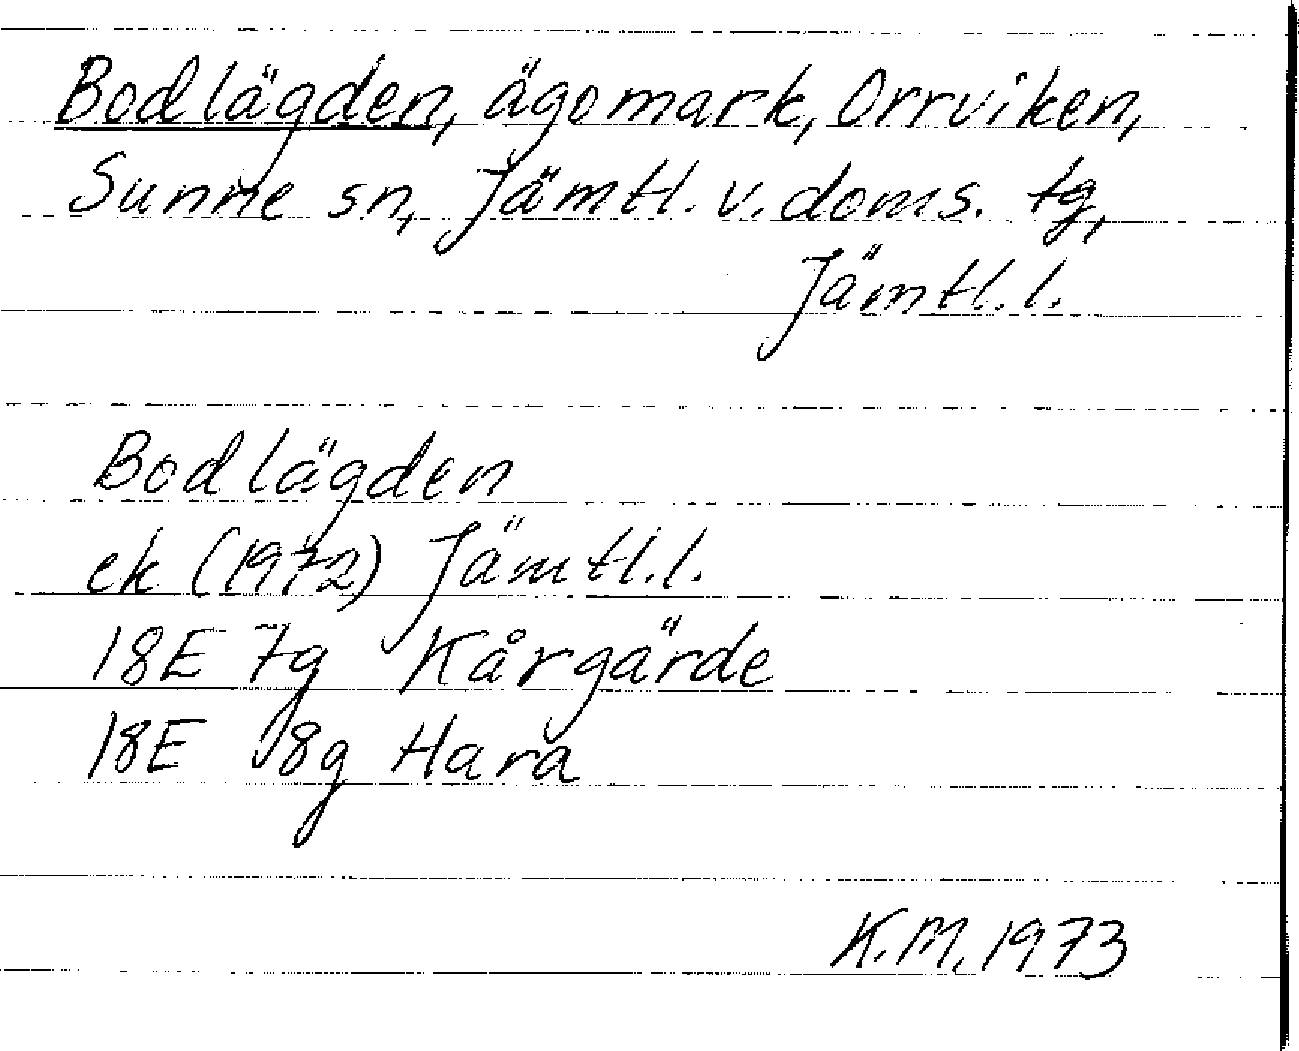 Bodlägden, ägomark, Orrviken,
Sunne sn, Jämtl. v. doms. tg,
Jämtl. l.
Bodlägden
ek (1972) Jämtl. l.
18E 7g Kårgärde
18E 8g Hara
K.M. 1973